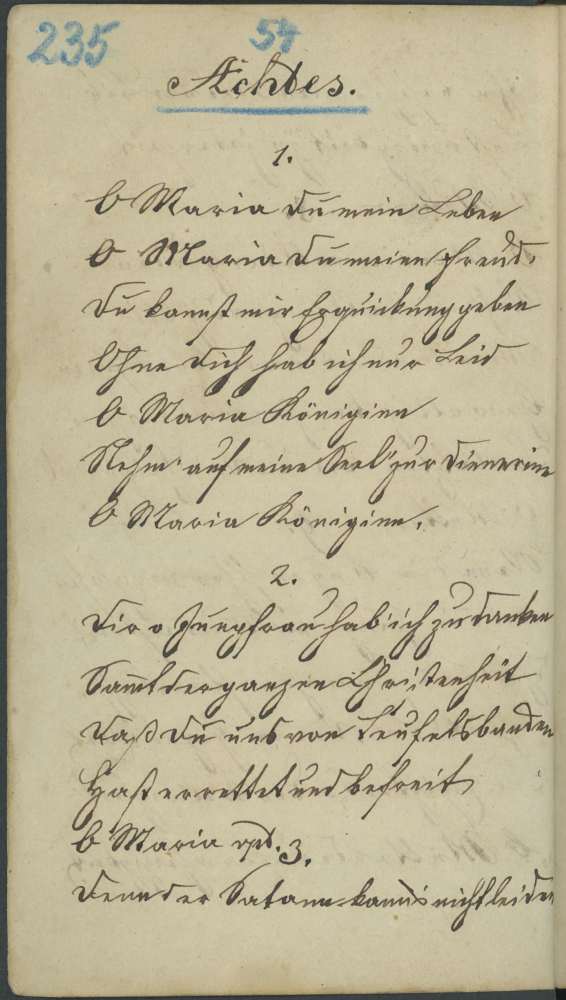 235
54
Achtes.
1.
O Maria du mein Leben
O Maria du meine Freud.
Du kannst mir Erquickung geben
Ohne dich hab ich nur Leid
O Maria Königinn
Nehm' auf meine Seel' zur Dienerinn
O Maria Königinn.
2.
Dir o Jungfrau hab' ich zu danken
Sammt der ganzen Christenheit
Daß du uns von Teufelsbanden
Hast errettet und befreit
O Maria
3.
Denn der Satann kanns nicht leiden